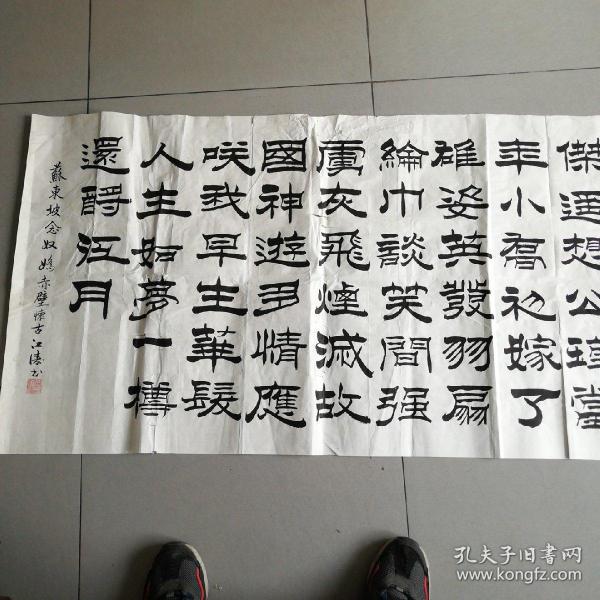 傑遥想公瑾當
年小喬初嫁了
雄姿英發羽扇
綸巾談笑間强
虜灰飛煙滅故
國神遊多情應
咲我早生華髮
人生如夢一樽
還酹江月
蘇東坡念奴嬌赤壁懷古江濤书
孔夫子旧書网
www.kongfz.com